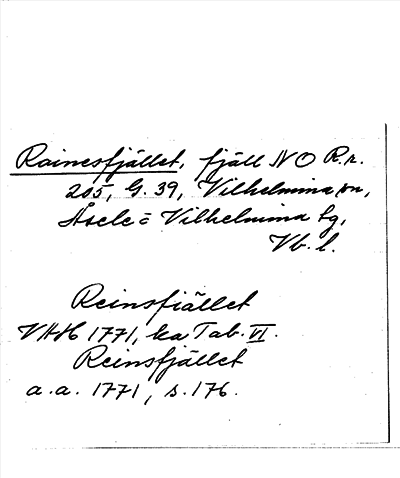 Rainesfjället, fjäll NO R.r.
205, G. 39, Vilhelmina sn,
Åsele ō Vilhelmina tg,
Vb. l.
Reinsfiället
VAH 1771, ka Tab. VI.
Reinsfjället
a.a. 1771, s. 176.